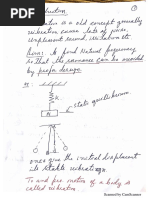 Vibration
①
Vibration is a old concept generally
vibration cause lots of noise
displacement sound, vibration etc
Aim: To find Natural frequency
so that the resonance can be avoided
by proper design.
k
m
state equilibrium
once give the initial displacement
is stable vibration.
To and fro motion of a body is
called vibration.
Scanned by CamScanner